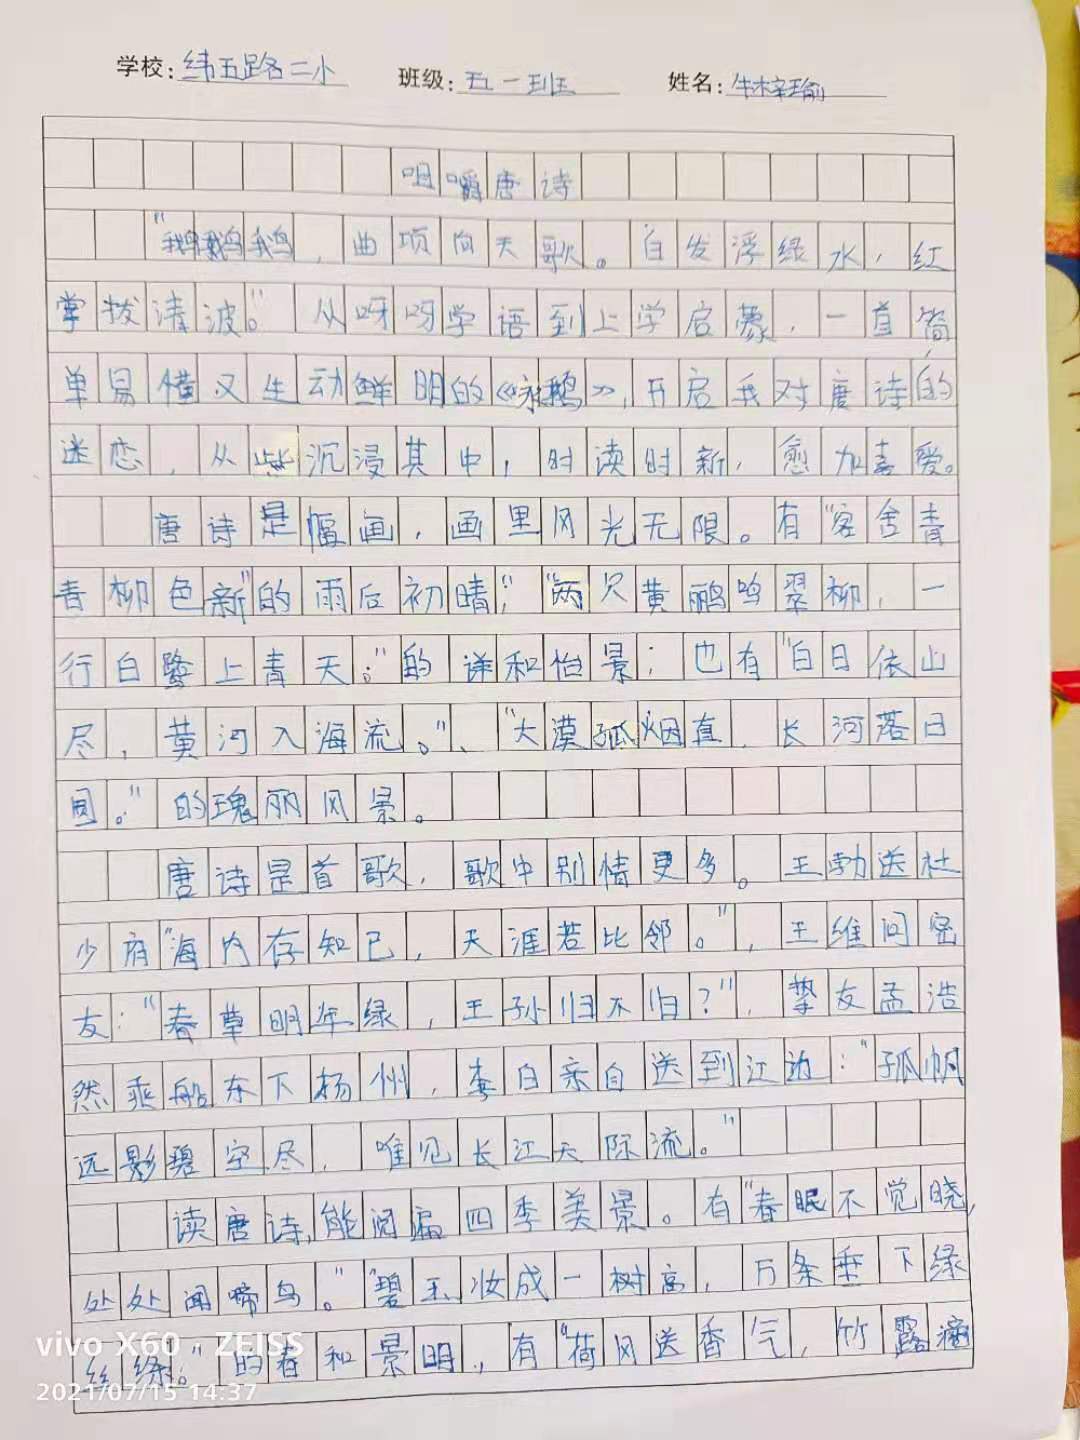 学校：纬五路二小 班级：五一班 姓名：牛梓瑜
咀嚼唐诗
"鹅鹅鹅，曲项向天歌。白发浮绿水，红
掌拨清波。"从呀呀学语到上学启蒙，一直简
单易懂又生动鲜明的《咏鹅》，开启我对唐诗的
迷恋，从此沉浸其中，时读时新，愈加喜爱。
唐诗是幅画，画里风光无限。有"客舍青
青柳色新"的雨后初晴；"两只黄鹂鸣翠柳，一
行白鹭上青天；"的祥和怡景；也有"白日依山
尽，黄河入海流。"、"大漠孤烟直，长河落日
圆。"的瑰丽风景。
唐诗是首歌，歌中别情更多。王勃送杜
少府"海内存知已，天涯若比邻。"，王维问密
友："春草明年绿，王孙归不归？"，挚友孟浩
然乘船东下扬州，李白亲自送到江边："孤帆
远影碧空尽，唯见长江天际流。"
读唐诗，能阅遍四季美景。有"春眠不觉晓，
处处闻啼鸟。""碧玉妆成一树高，万条垂下绿
丝绦。"的春和景明，有"荷风送香气，竹露滴
vivo X60 ZEISS
2021/07/15 14:37